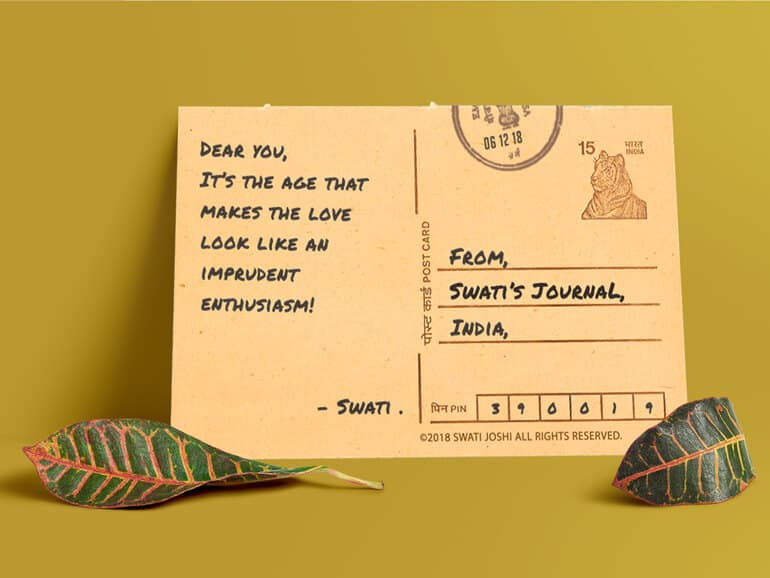 Dear you,
It's the age that
makes the love
look like an
imprudent
enthusiasm!
- Swati .
06 12 18
15 भारत
INDIA
पोस्ट कार्ड POST CARD
From,
Swati's Journal,
India,
पिन PIN 3 9 0 0 1 9
©2018 SWATI JOSHI ALL RIGHTS RESERVED.